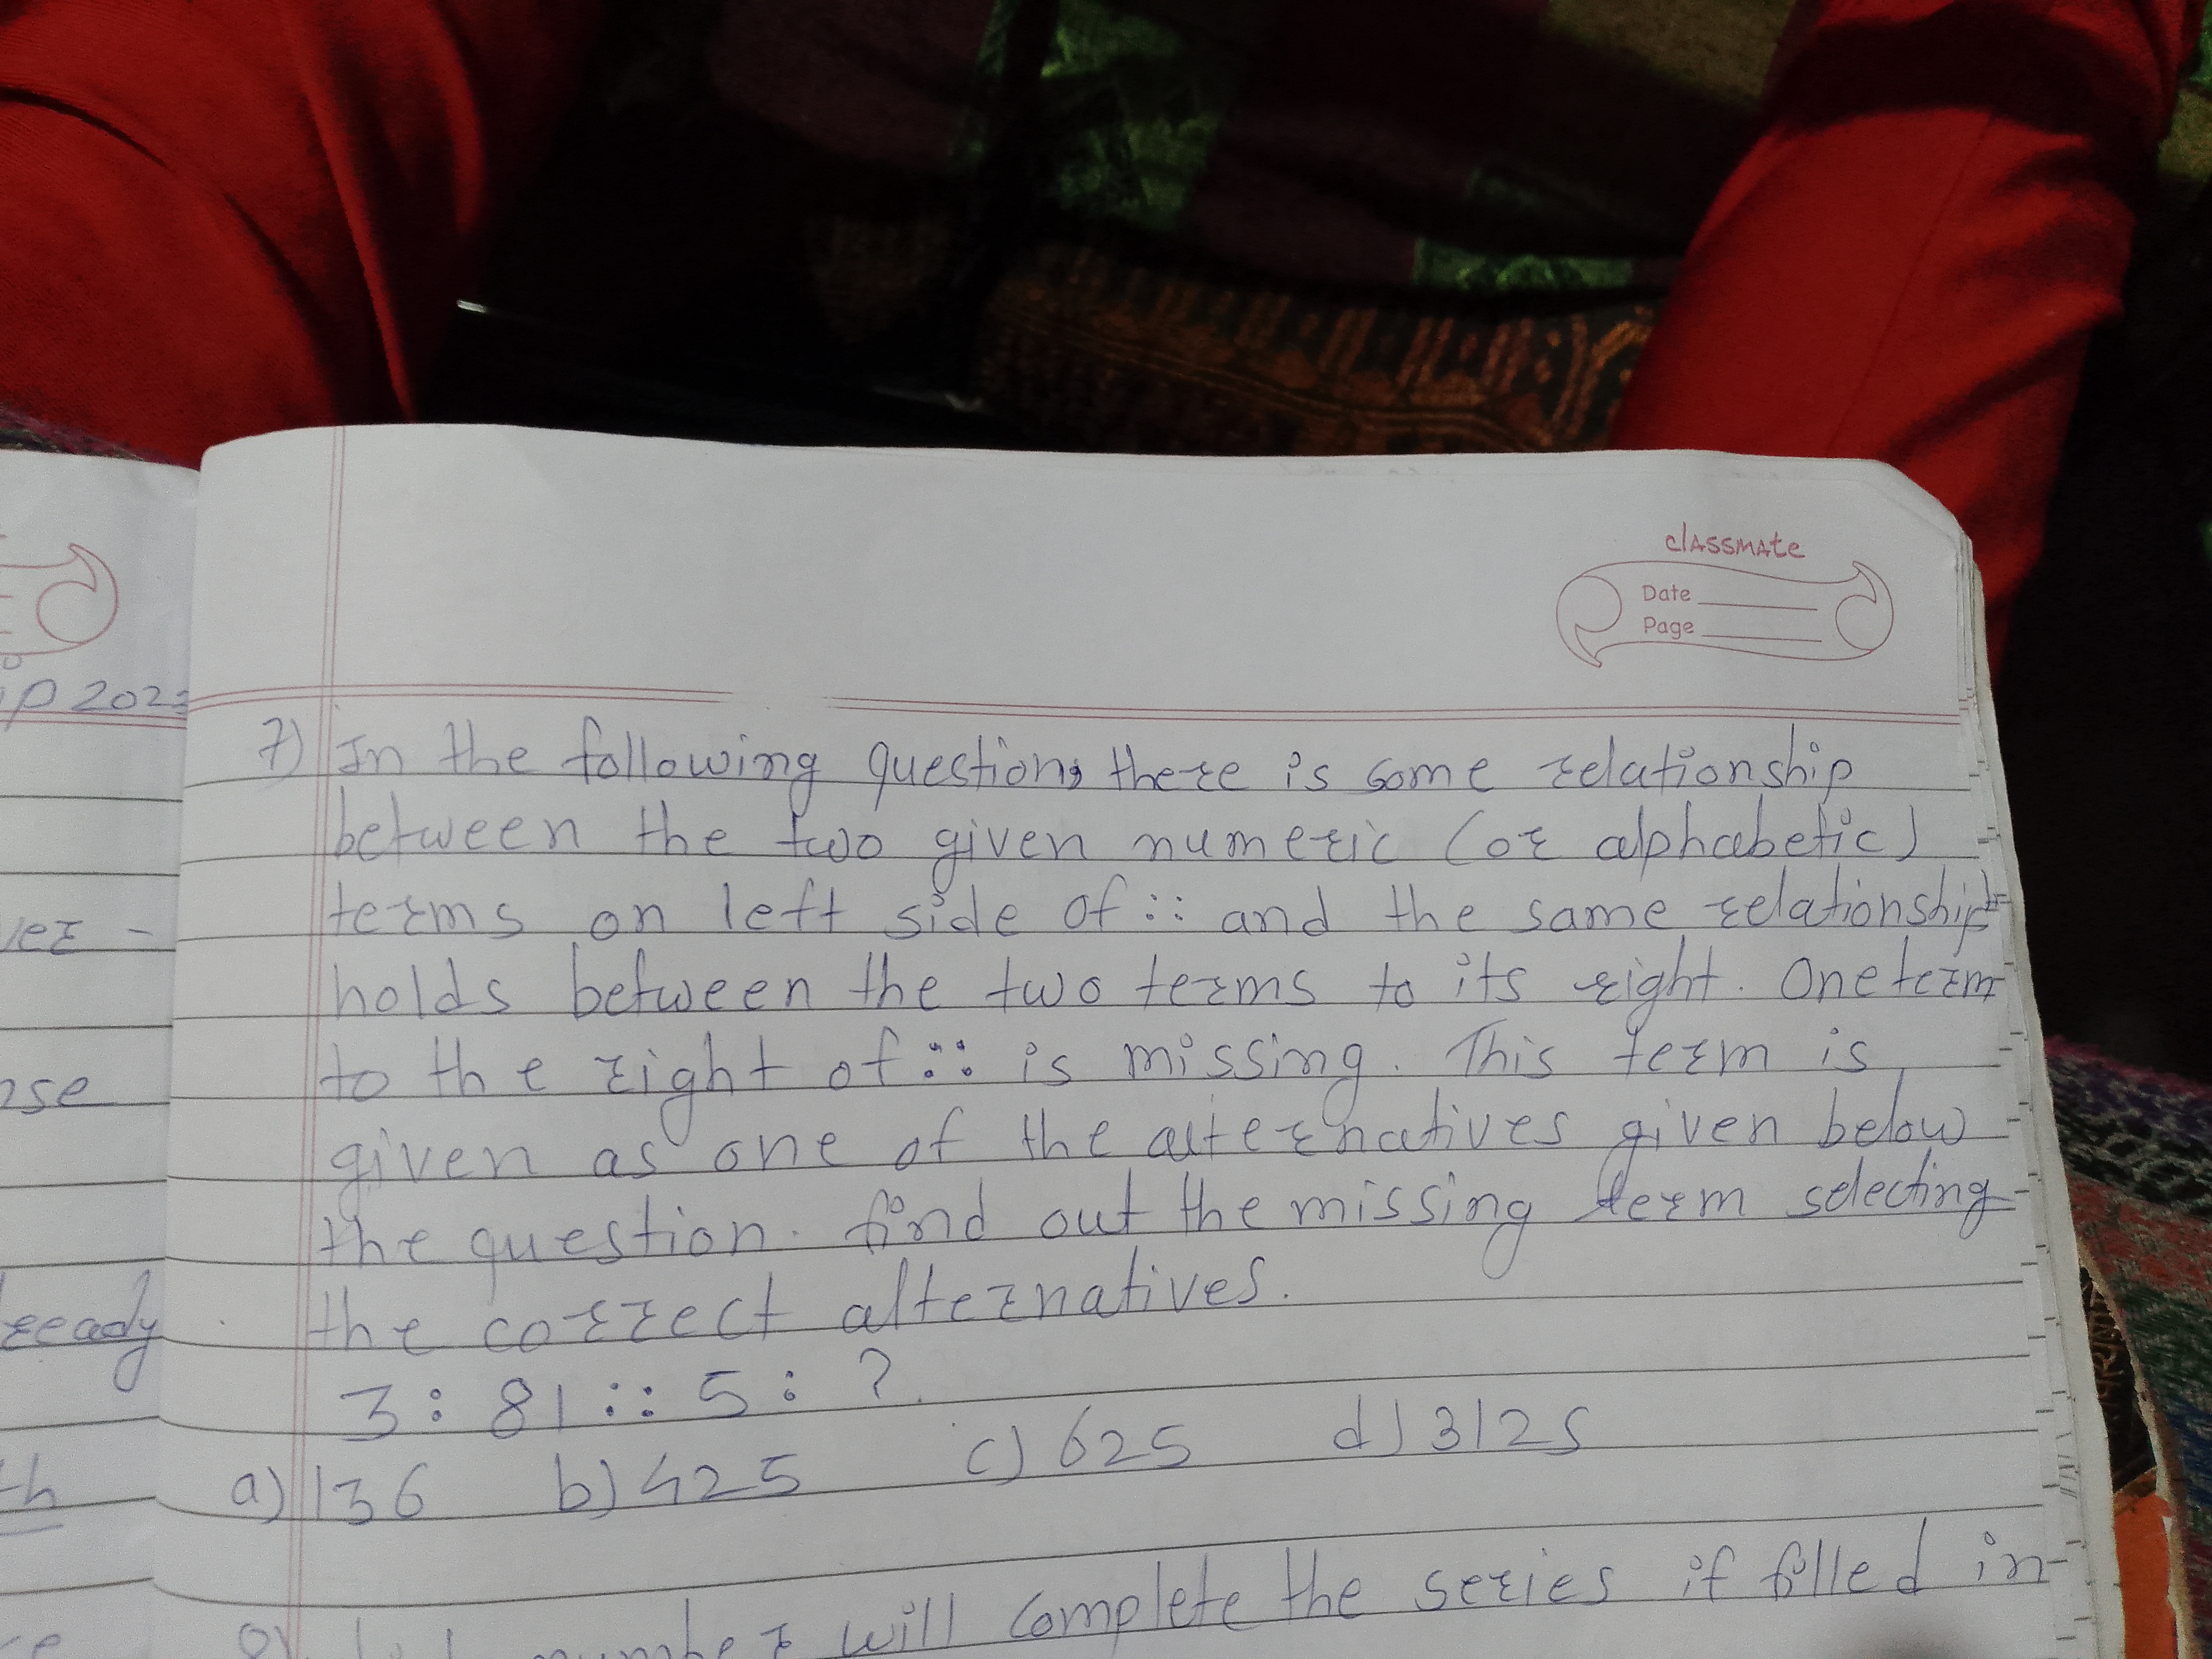 classmate
Date
Page
7) In the following question, there is some relationship
between the two given numeric (or alphabetic)
terms on left side of :: and the same relationship
holds between the two terms to its right. One term
to the right of :: is missing. This term is
given as one of the alternatives given below
the question. find out the missing term selecting
the correct alternatives.
3 : 81 :: 5 : ?
a) 136 b) 425 c) 625 d) 3125
will complete the series if filled in